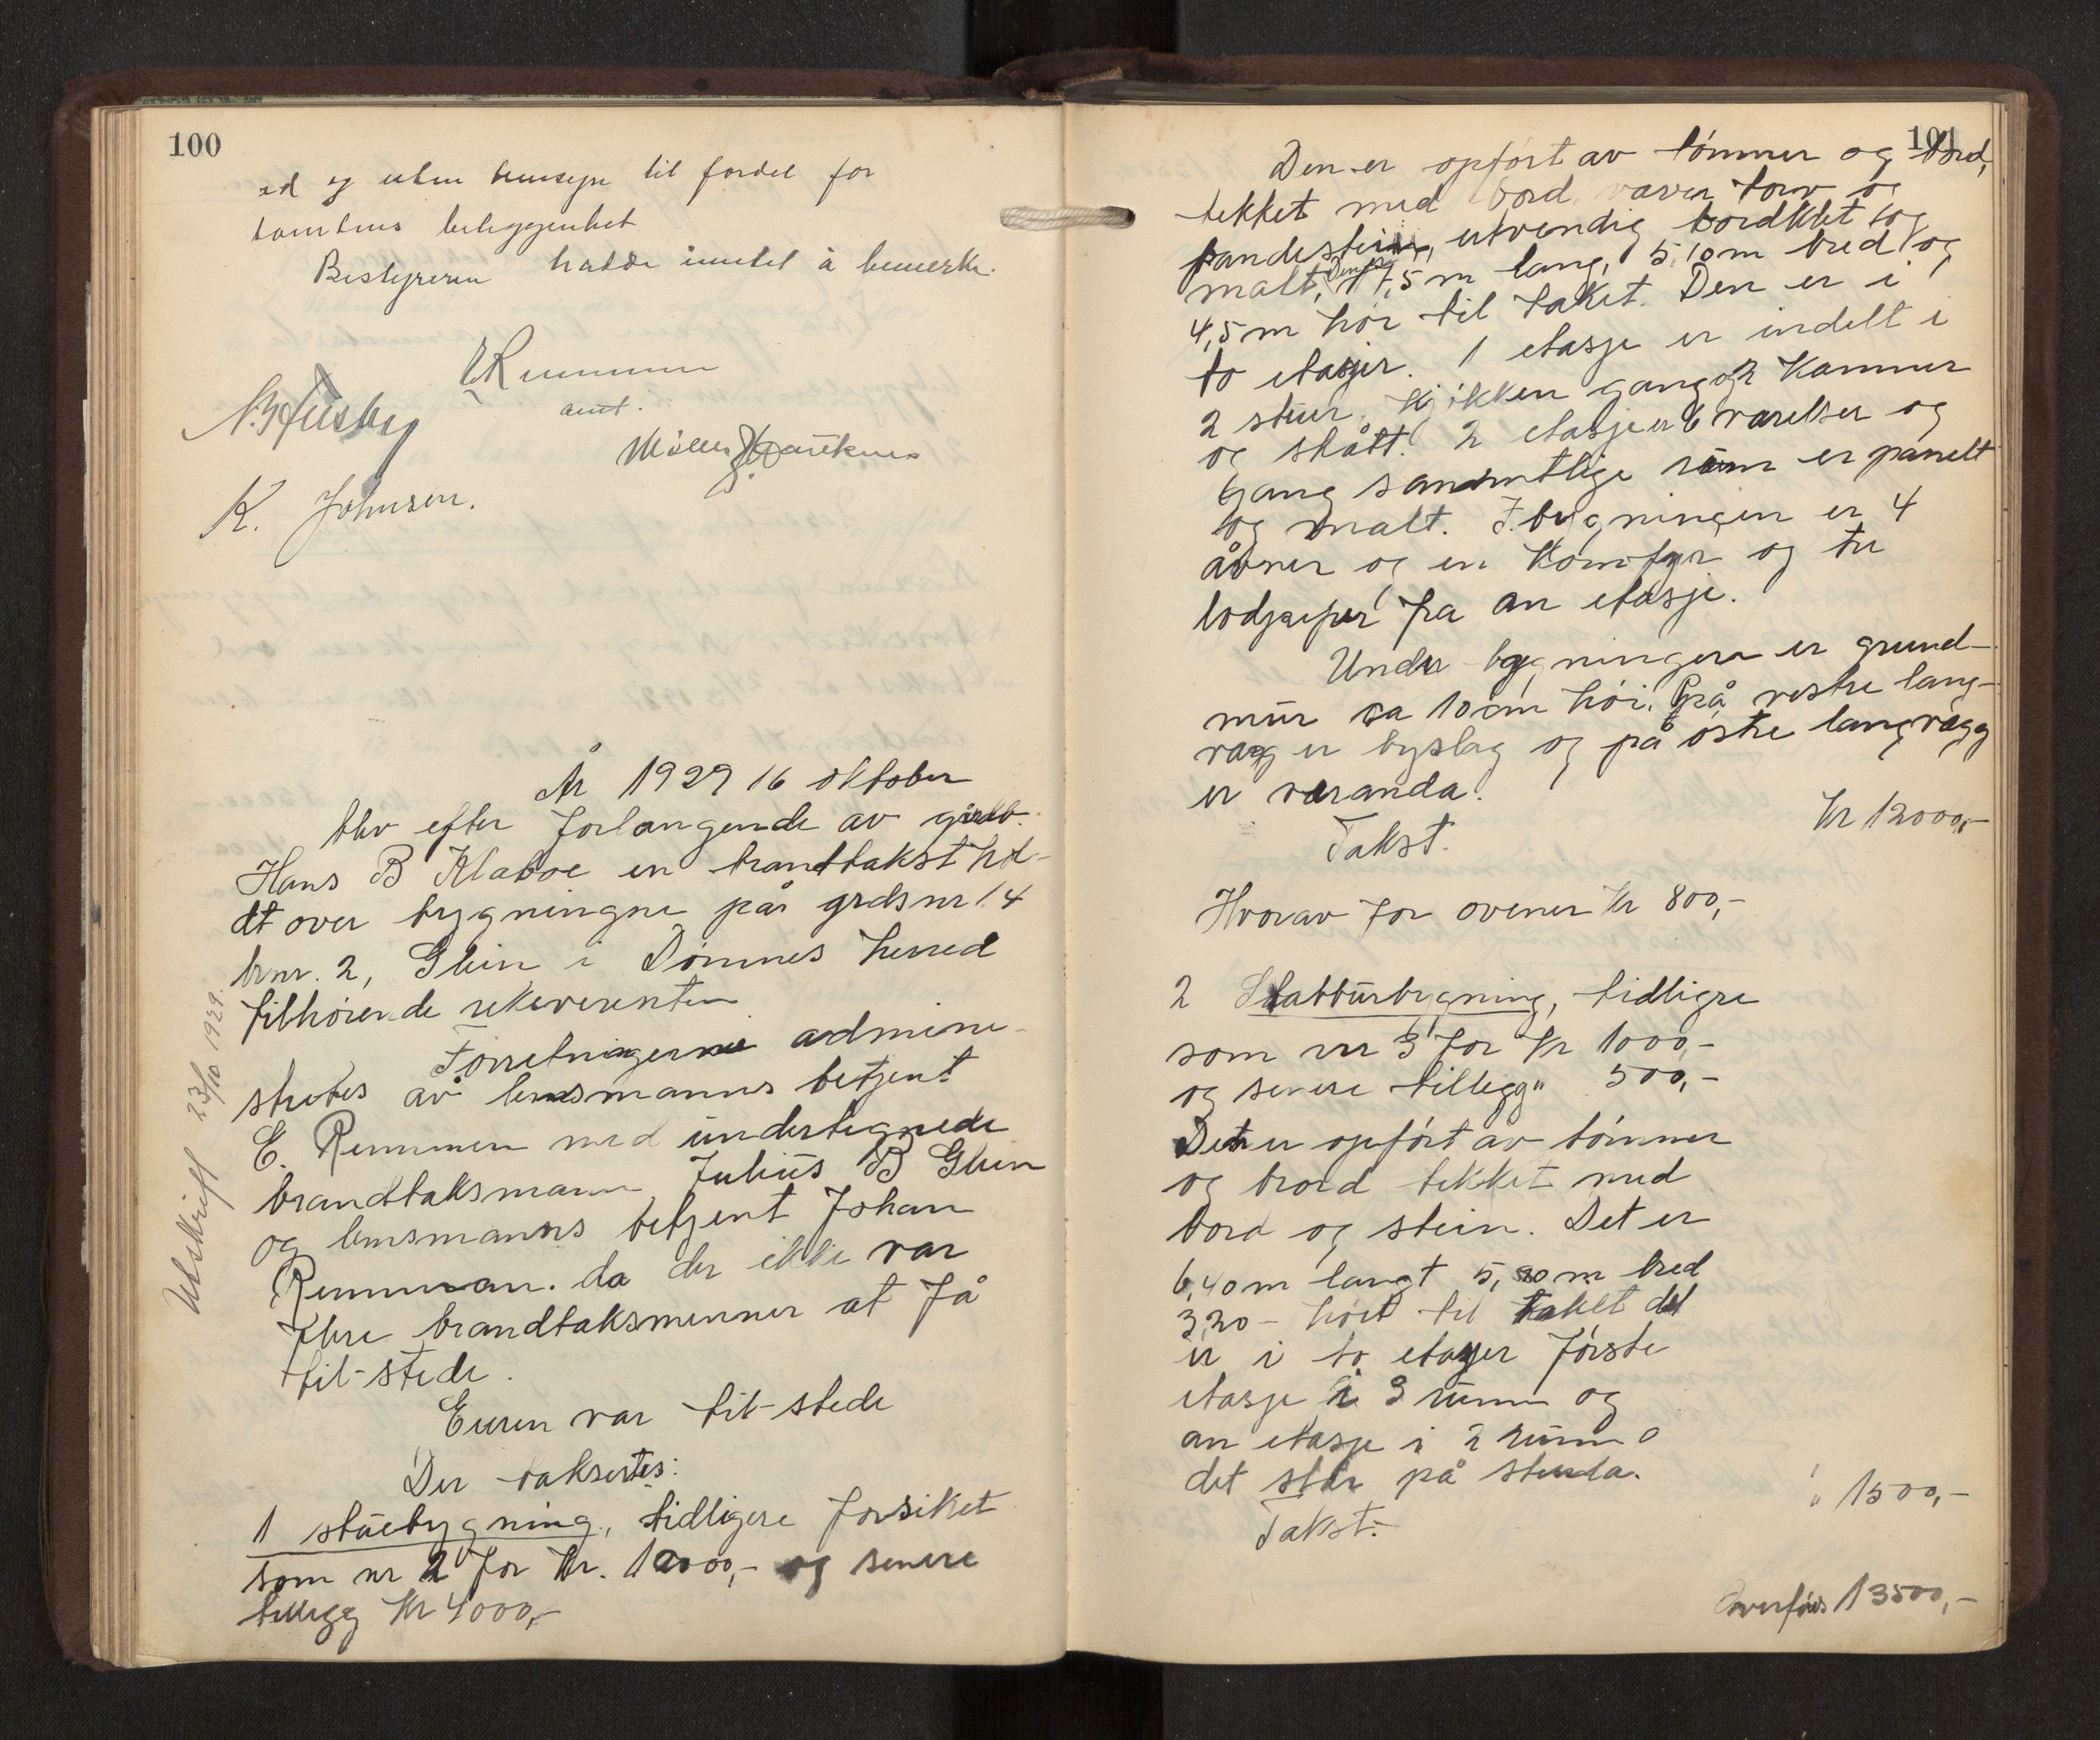 100
ed og uten hensyn til fordel for
tomtens beliggenhet
Bestyreren hadde inntet å bemerke.
E Remmen
amt.
N. Husby
K. Johnsen.
År 1929 16 oktober
blev efter forlangende av gårdb.
Hans B Klaboe en brandtakst hol-
dt over bygningne på grdsnr 14
brnr. 2, Glein i Dønnes herred
tilhörende rekverenten
Forretningerne admini-
stretes av lensmanns betjent
E. Remmen med undertegnede
brandtaksmann Julius B Glein
og lensmanns betjent Johan
Remman. da der ikke var
flere brandtaksmenner at få
til-stede.
Eieren var til-stede
Der taksertes:
1 stuebygning, tidligere forsiket
som nr 2 for Kr. 12000,- og senere
tillegg Kr 4000,-
Utskrift 23/10 1929.
101
Den er opført av tömmer og bord,
tekket med bord, never torv og
pandestein, utvendig bordklet og
malt, Den er 17,5 m lang, 5,10 m bred og
4,5 m höi til taket. Den er i
to etasjer. 1 etasje er indelt i
2 stuer. Kjökken gang og 2 Kammer
og skått. 2 etasje er 6 varelser og
gang samtlige rum er panelt
og malt. I bygningen er 4
åvner og en Komfyr og tre
lodpiper fra an etasje.
Under bygningen er grund-
mur ca 10 cm höi. På vestre lang-
vag er byslag og på östre langvägg
er veranda.
Takst. Kr 12000,-
Hvorav for ovener Kr 800,-
2 Stabbursbygning, tidligre
som nr 3 for Kr 1000,-
og senere tillegg " 500,-
Det er opfört av tömmer
og bord tekket med
bord og stein. Det er
6,40 m langt 5,80 m bred
3,20 - höit til taket det
er i to etasjer förste
etasje i 3 rumm og
an etasje i 2 rumm
det står på stenda.
Takst. " 1500,-
Overføres 13500,-